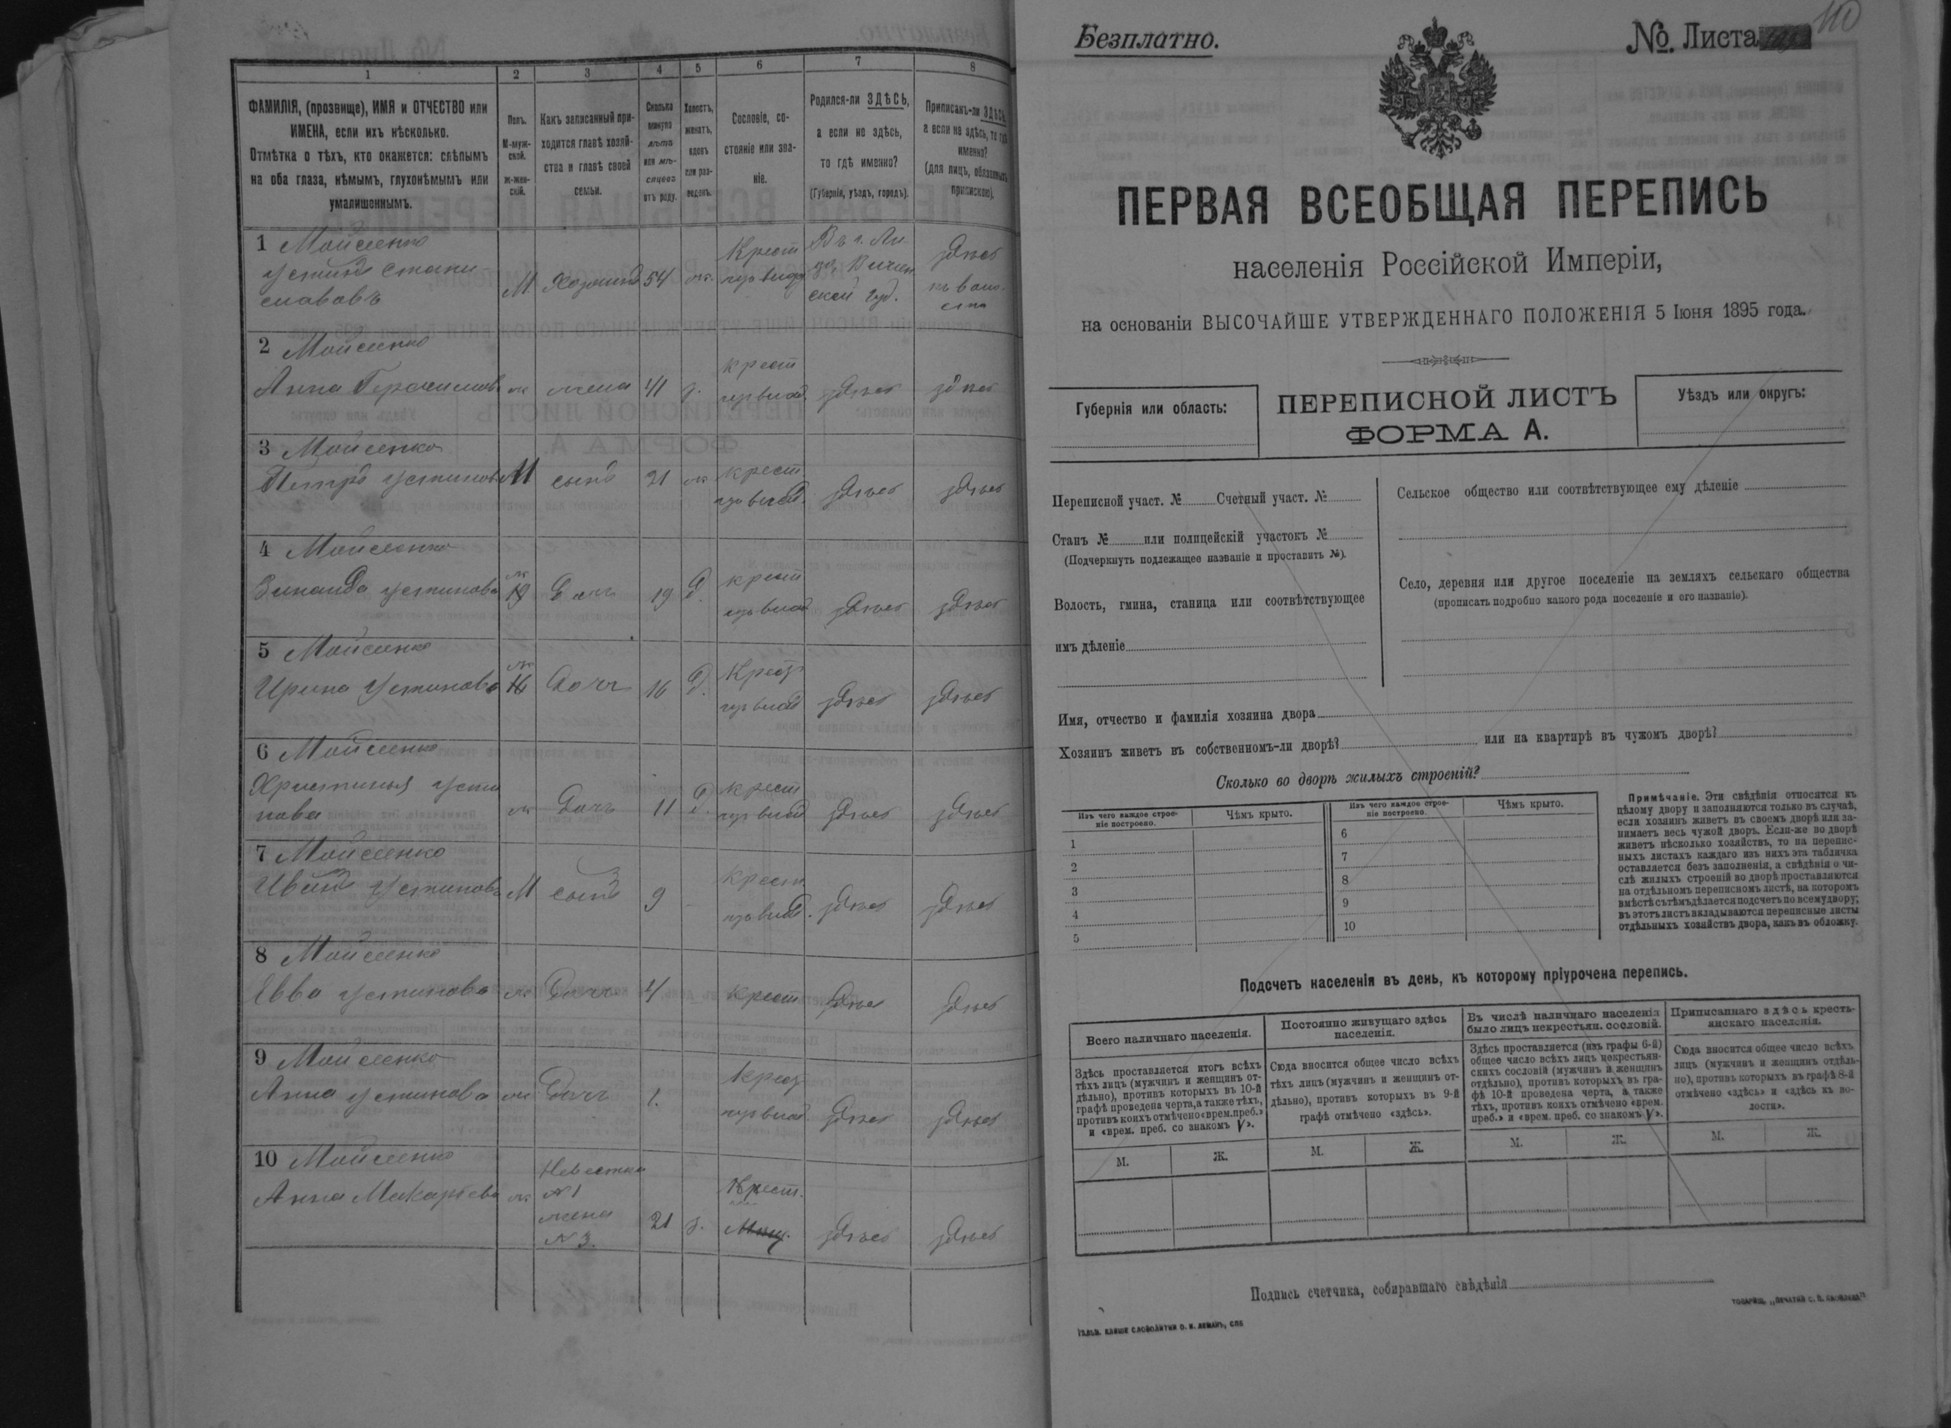 1
2
3
4
5
6
7
8
ФАМИЛІЯ, (прозвище), ИМЯ и ОТЧЕСТВО или
ИМЕНА, если ихъ нѣсколько.
Отмѣтка о тѣхъ, кто окажется: слѣпымъ
на оба глаза, нѣмымъ, глухонѣмымъ или
умалишеннымъ.
Полъ.
М-муж-
ской.
ж-жен-
скій.
Какъ записанный при-
ходится главѣ хозяй-
ства и главѣ своей
семьи.
Сколько
минуло
лѣтъ
или мѣ-
сяцевъ
отъ роду.
Холостъ,
женатъ,
вдовъ
или раз-
веденъ.
Сословіе, со-
стояніе или зва-
ніе.
Родился-ли ЗДѢСЬ,
а если не здѣсь,
то гдѣ именно?
(Губернія, уѣздъ, городъ).
Приписанъ-ли ЗДѢСЬ,
а если не здѣсь, то гдѣ
именно?
(для лицъ, обязанныхъ
припискою).
1 Мойсеенко
Устинъ Стани
славовъ
М Хозяинъ 54 ж. Крест
здѣсь
2 Мойсеенко
Анна Герасимов ж жена 41 з. крест
здѣсь здѣсь
3 Мойсеенко
Петръ Устинов М сынъ 21 ж крест
здѣсь здѣсь
4 Мойсеенко
Зинаида Устинова ж дочь 19 д. крест
здѣсь здѣсь
5 Мойсеенко
Ирина Устинова ж дочь 16 д. Крест
здѣсь здѣсь
6 Мойсеенко
Христинья Усти
нова ж дочь 11 д. крест
здѣсь здѣсь
7 Мойсеенко
Иванъ Устиновъ М сынъ 9 - крест
здѣсь здѣсь
8 Мойсеенко
Евва Устинова ж дочь 4 крест здѣсь здѣсь
9 Мойсеенко
Анна Устинова ж дочь 1. Крест
здѣсь здѣсь
10 Мойсеенко
Анна Макарьева ж Невестка
№1
жена
№ 3. 21 з. Крест.
здѣсь здѣсь
Безплатно.
№ Листа
110
ПЕРВАЯ ВСЕОБЩАЯ ПЕРЕПИСЬ
населенія Россійской Имперіи,
на основаніи ВЫСОЧАЙШЕ УТВЕРЖДЕННАГО ПОЛОЖЕНІЯ 5 Іюня 1895 года.
Губернія или область:
ПЕРЕПИСНОЙ ЛИСТЪ
ФОРМА А.
Уѣздъ или округъ:
Переписной участ. № Счетный участ. №
Станъ № или полицейскій участокъ №
(Подчеркнуть подлежащее названіе и проставить №).
Волость, гмина, станица или соотвѣтствующее
имъ дѣленіе
Сельское общество или соотвѣтствующее ему дѣленіе
Село, деревня или другое поселеніе на земляхъ сельскаго общества
(прописать подробно какого рода поселеніе и его названіе).
Имя, отчество и фамилія хозяина двора
Хозяинъ живетъ въ собственномъ-ли дворѣ? или на квартирѣ въ чужомъ дворѣ?
Сколько во дворѣ жилыхъ строеній?
Изъ чего каждое строе-
ніе построено.
Чѣмъ крыто.
Изъ чего каждое строе-
ніе построено.
Чѣмъ крыто.
1
2
3
4
5
6
7
8
9
10
Примѣчаніе. Эти свѣдѣнія относятся къ
цѣлому двору и заполняются только въ случаѣ,
если хозяинъ живетъ въ своемъ дворѣ или за-
нимаетъ весь чужой дворъ. Если-же во дворѣ
живетъ нѣсколько хозяйствъ, то на перепис-
ныхъ листахъ каждаго изъ нихъ эта табличка
оставляется безъ заполненія, а свѣдѣнія о чи-
слѣ жилыхъ строеній во дворѣ проставляются
на отдѣльномъ переписномъ листѣ, на которомъ
вмѣстѣ съ тѣмъ дѣлается подсчетъ по всему двору;
въ этотъ листъ вкладываются переписные листы
отдѣльныхъ хозяйствъ двора, какъ въ обложку.
Подсчетъ населенія въ день, къ которому пріурочена перепись.
Всего наличнаго населенія.
Постоянно живущаго здѣсь
населенія.
Въ числѣ наличнаго населенія
было лицъ некрестьян. сословій.
Приписаннаго здѣсь кресть-
янскаго населенія.
Здѣсь проставляется итогъ всѣхъ
тѣхъ лицъ (мужчинъ и женщинъ от-
дѣльно), противъ которыхъ въ 10-й
графѣ проведена черта, а также тѣхъ,
противъ коихъ отмѣчено «врем. преб.»
и «врем. преб. со знакомъ V».
Сюда вносится общее число всѣхъ
тѣхъ лицъ (мужчинъ и женщинъ от-
дѣльно), противъ которыхъ въ 9-й
графѣ отмѣчено «здѣсь».
Здѣсь проставляется (изъ графы 6-й)
общее число всѣхъ лицъ некрестьян-
скихъ сословій (мужчинъ и женщинъ
отдѣльно), противъ которыхъ въ гра-
фѣ 10-й проведена черта, а также
тѣхъ, противъ коихъ отмѣчено «врем.
преб.» и «врем. преб. со знакомъ V».
Сюда вносится общее число всѣхъ
лицъ (мужчинъ и женщинъ отдѣль-
но), противъ которыхъ въ графѣ 8-й
отмѣчено «здѣсь» и «здѣсь къ во-
лости».
М. Ж. М. Ж. М. Ж. М. Ж.
Подпись счетчика, собиравшаго свѣдѣнія